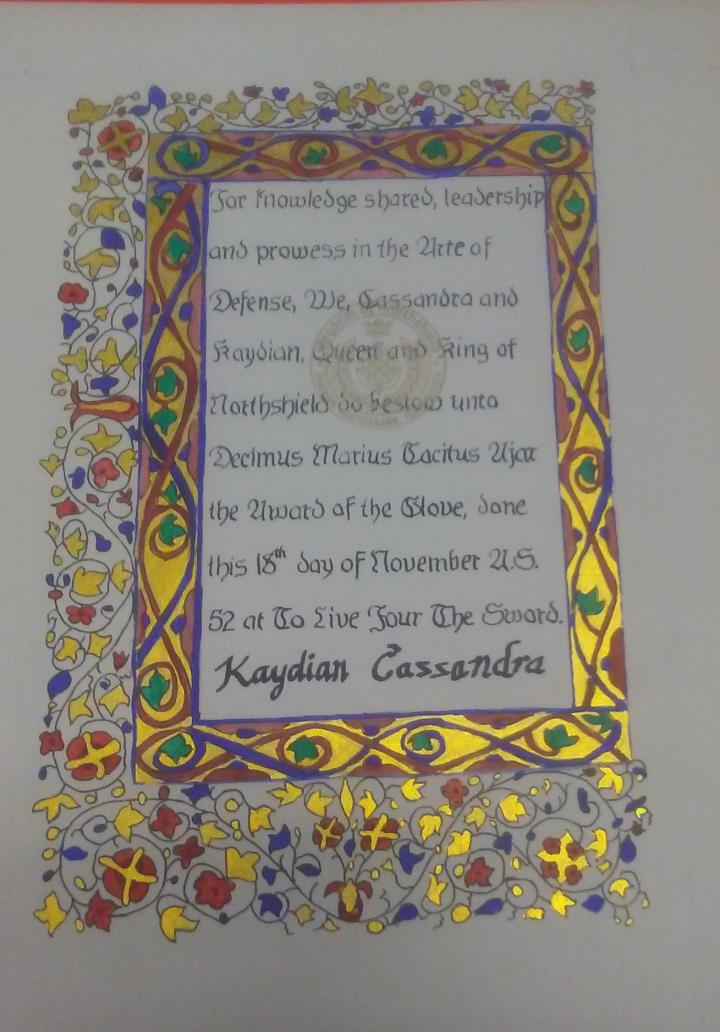 For Knowledge shared, leadership
and prowess in the Arte of
Defense, We, Cassandra and
Kaydian, Queen and King of
Northshield do bestow unto
Decimus Marius Tacitus Ajax
the Award of the Glove, done
this 18th day of November A.S.
52 at To Live Four The Sword.
Kaydian Cassandra